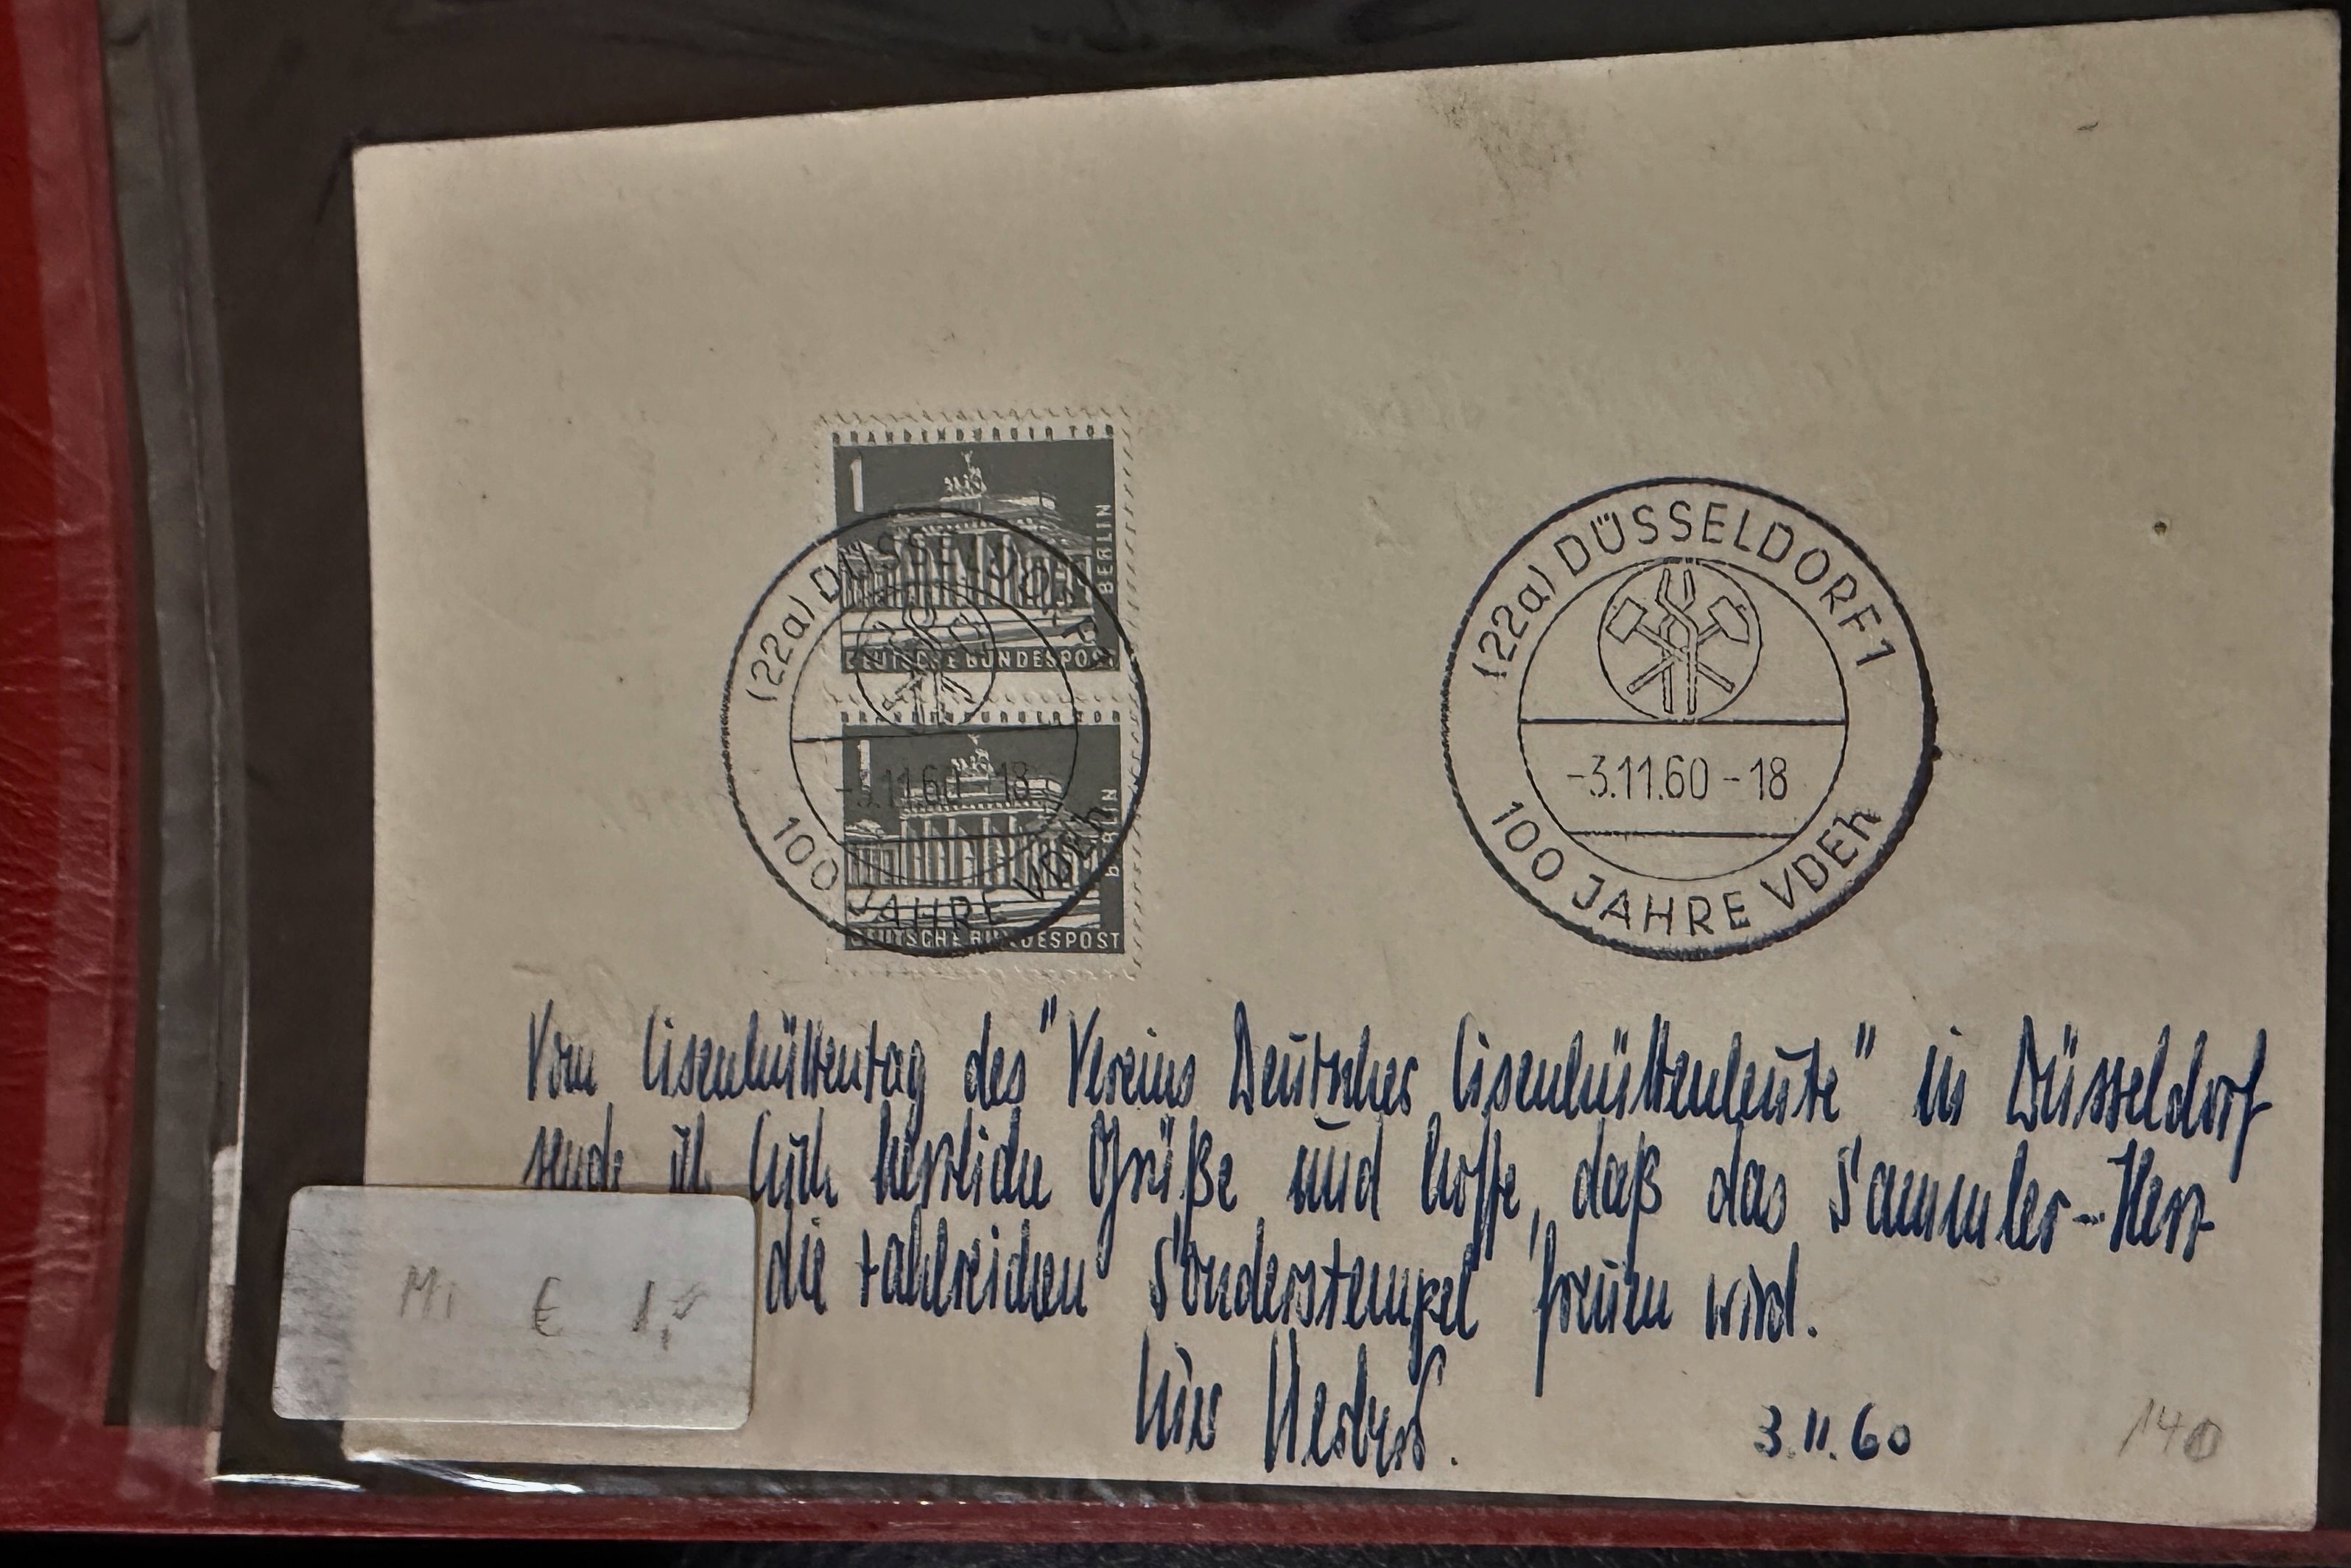 BRANDENBURGER TOR
1
BERLIN
DEUTSCHE BUNDESPOST
BRANDENBURGER TOR
1
BERLIN
DEUTSCHE BUNDESPOST
(22a) DÜSSELDORF 1
-3.11.60-18
100 JAHRE VDEh
(22a) DÜSSELDORF 1
-3.11.60-18
100 JAHRE VDEh
Vom Eisenhüttentag des "Vereins Deutscher Eisenhüttenleute" in Düsseldorf
sende ich Euch herzliche Grüße und hoffe, daß das Sammler-Herz
die zahlreichen Sonderstempel freuen wird.
3.11.60
140
Mi € 1,-